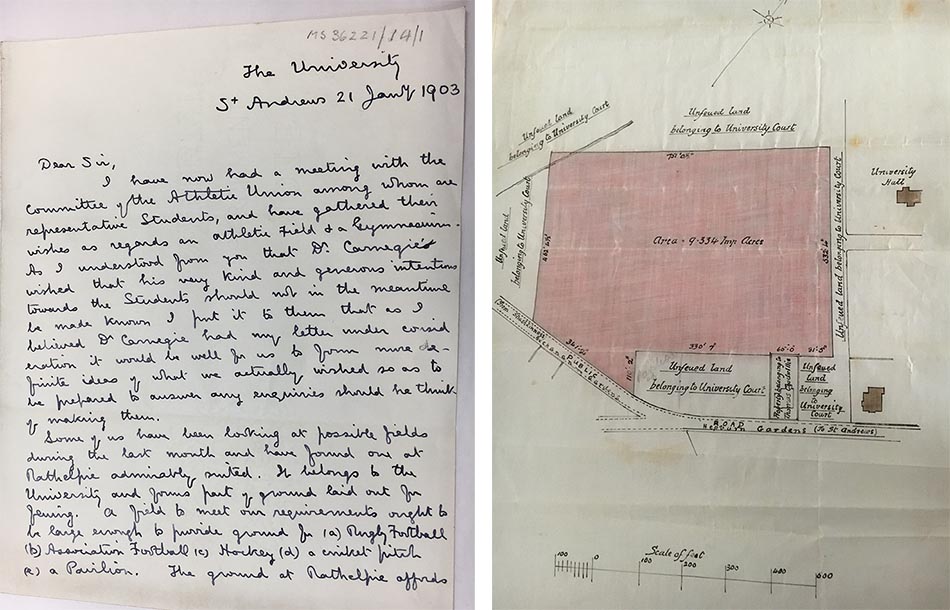 MS 36221/14/1
The University
St Andrews 21 Jany 1903
Dear Sir,
I have now had a meeting with the
Committee of the Athletic Union among whom are
representative Students, and have gathered their
wishes as regards an athletic Field & a Gymnasium.
As I understood from you that Dr. Carnegie
wished that his very kind and generous intentions
towards the Students should not in the meantime
be made known I put it to them that as I
believed Dr Carnegie had my letter under consid
eration it would be well for us to form more de-
finite ideas of what we actually wished so as to
be prepared to answer any enquiries should he think
of making them.
Some of us have been looking at possible fields
during the last month and have found one at
Rathelpie admirably suited. It belongs to the
University and forms part of ground laid out for
feuing. A field to meet our requirements ought to
be large enough to provide ground for (a) Rugby Football
(b) Association Football (c) Hockey (d) a cricket pitch
(e) a Pavilion. The ground at Rathelpie affords
Unfeued land
belonging to University Court
Unfeued land
belonging to University Court
Unfeued land
belonging to University Court
Area = 9.334 Imp. Acres
Unfeued land belonging to University Court
University
Hall
330'
Unfeued land
belonging to University Court
Property belonging to
Thomas
Unfeued
land
belonging
to
University
Court
Public
ROAD
Hepburn Gardens (To St Andrews)
Scale of feet
100 0 100 200 300 400 600